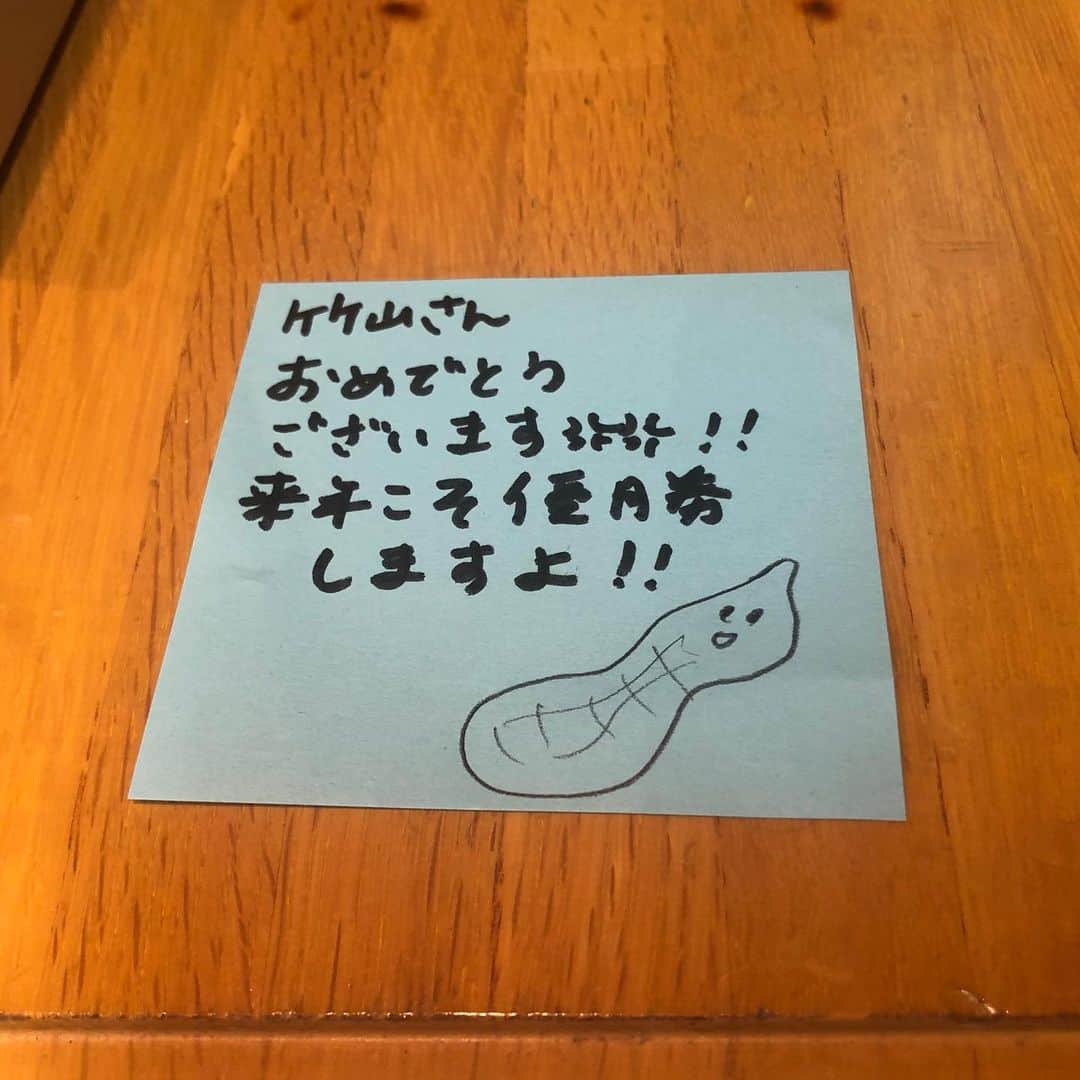 竹山さん
おめでとう
ございます!!
来年こそ優勝
しますよ!!